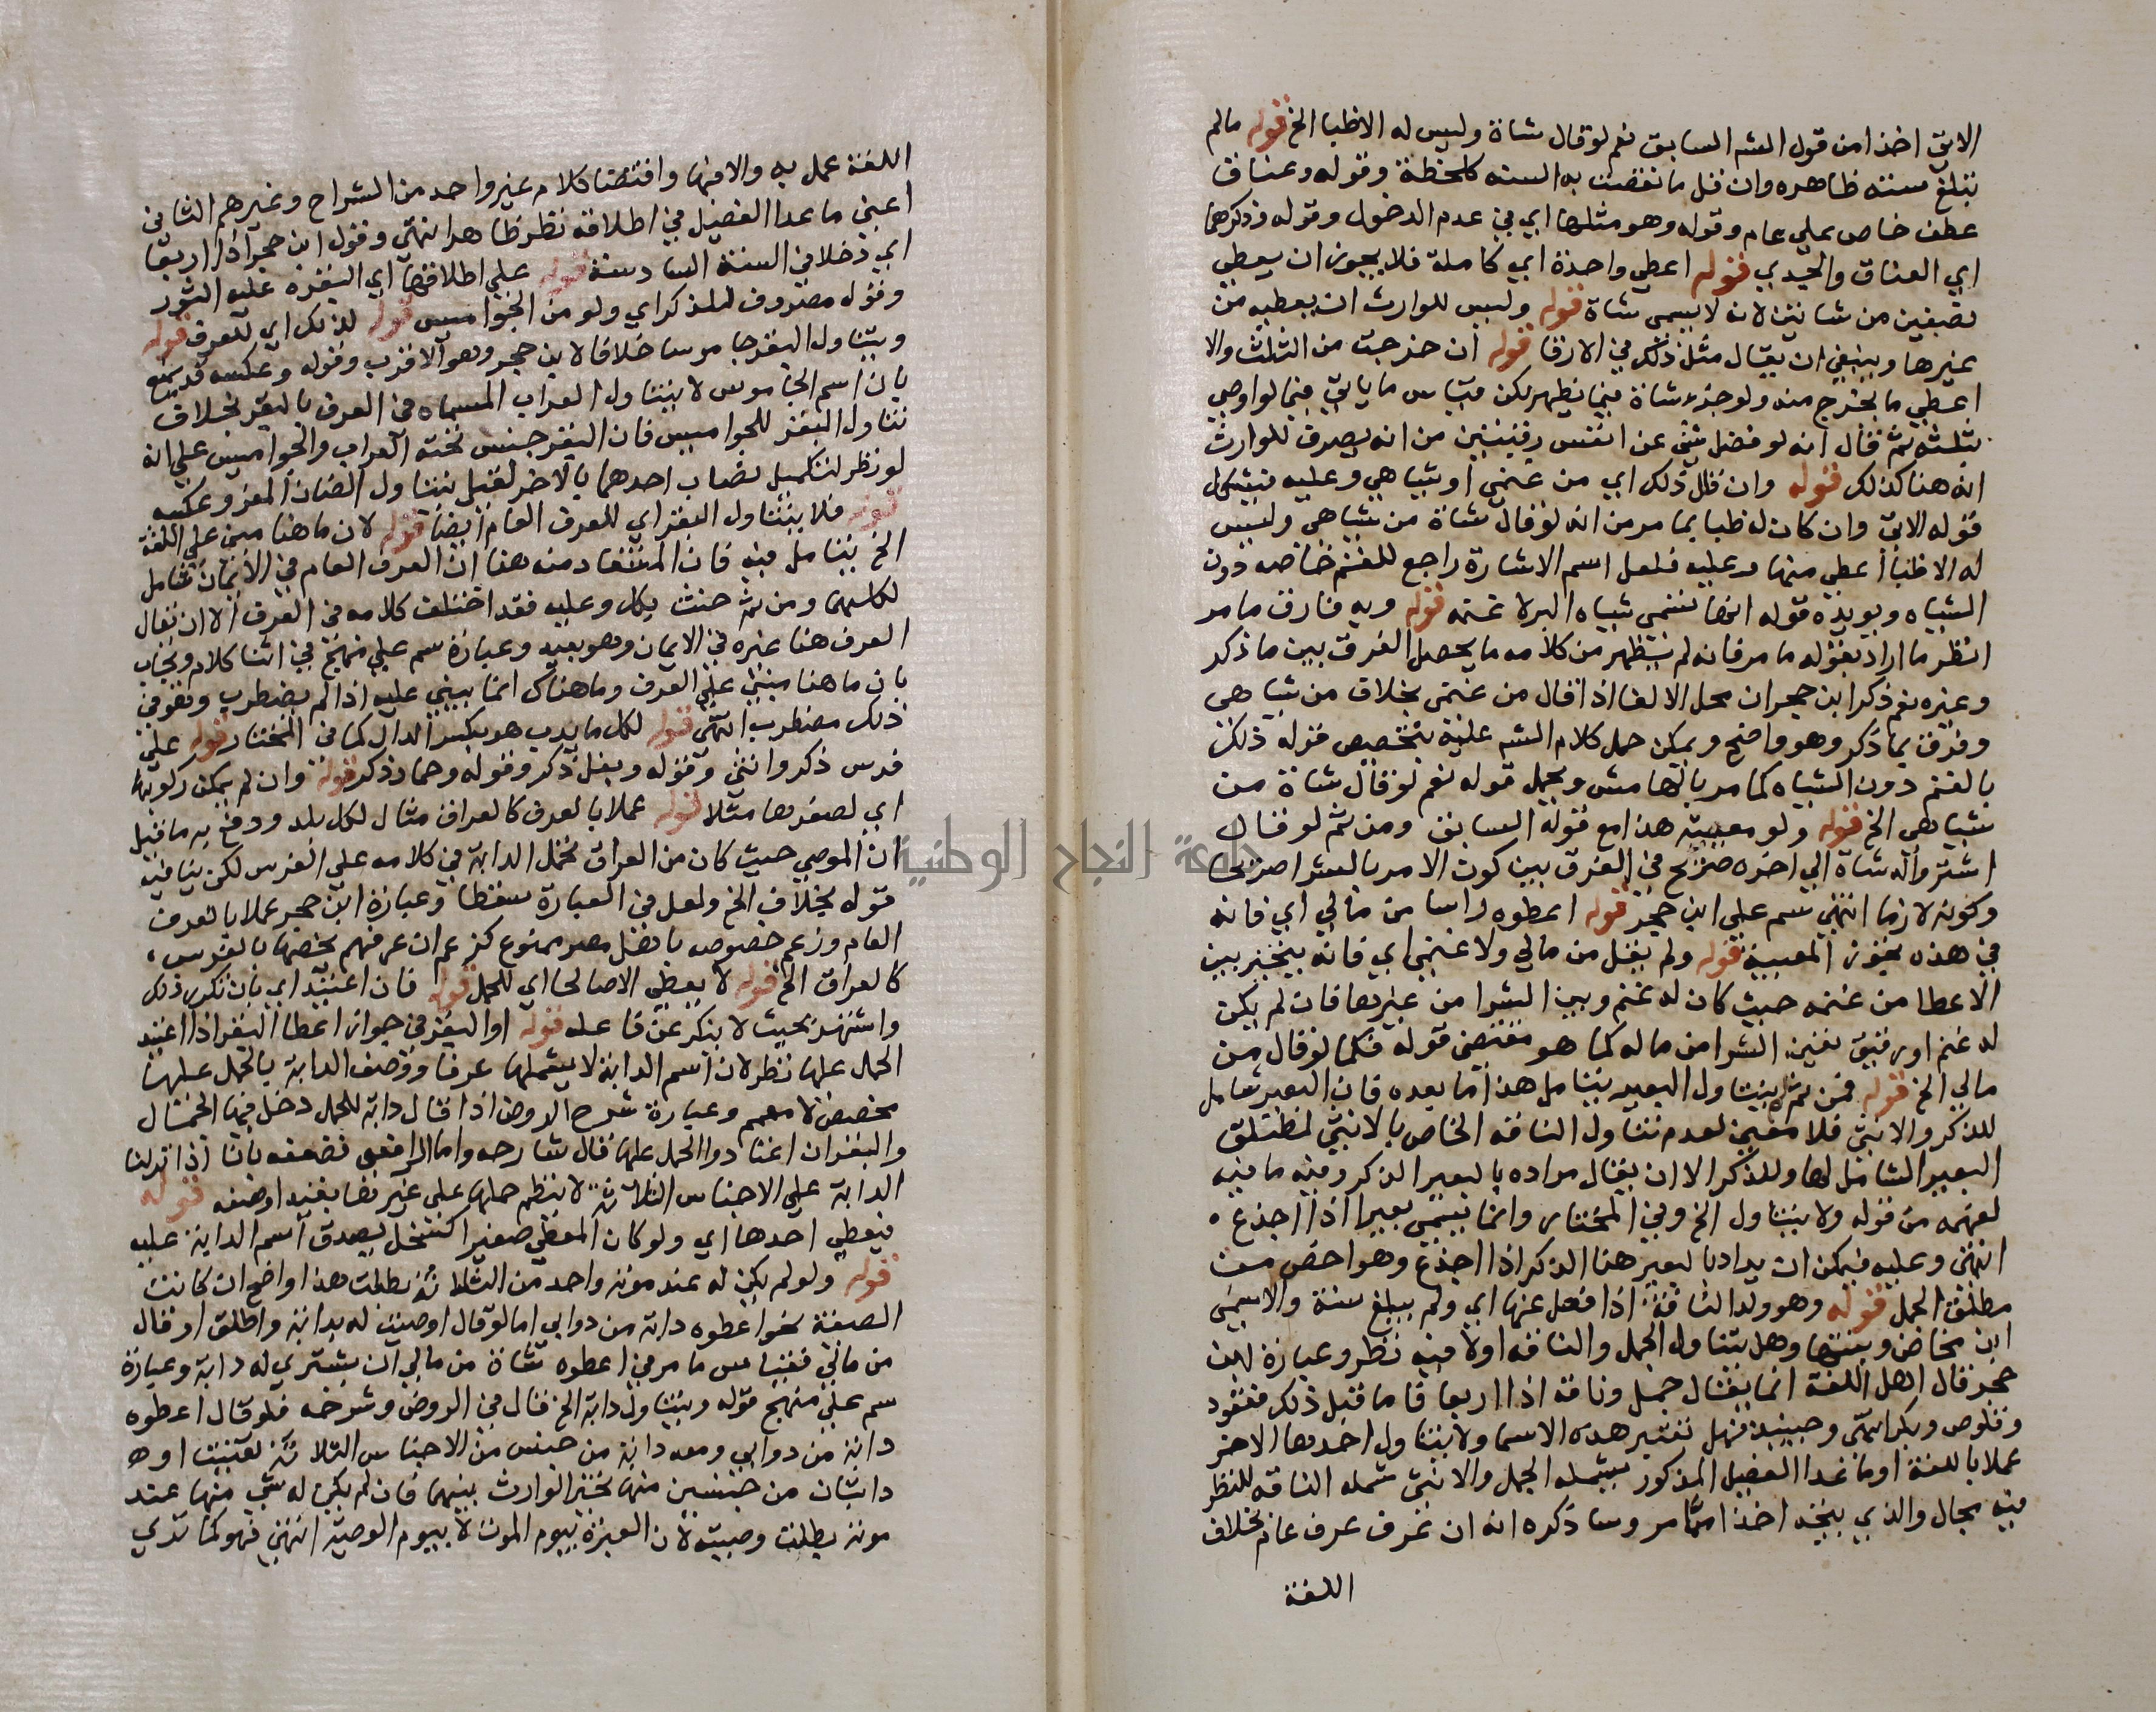 الاتي اخذا من قول الشه السابق نعم لو قال شاة وليس له الا ظبا الخ قوله ما لم
تبلغ سنته ظاهره وان قل ما نقصت به السنه كلحظة وقوله وعناق
عطف خاص علي عام وقوله وهو مثلها اي في عدم الدخول وقوله وذكرهما
اي العناق والجدي قوله اعطي واحدة اي كاملة فلا يجوز ان يعطي
نصفين من شاتين لانه لا يسمى شاة قوله وليس للوارث ان يعطيه من
غيرها وينبغي ان يقال مثل ذلك في الارقا قوله ان خرجت من الثلث والا
اعطي ما يخرج منه ولو جزء شاة فيما يظهر لكن قياس ما ياتي فيما لو اوصي
بثلثه ثم قال انه لو فضل شي عن انفس رقيقين من انه يصرف للوارث
انه هنا كذلك قوله وان قال ذلك اي من غنمي او شياهي وعليه فيشكل
قوله الاتي وان كان له ظبا بما مر من انه لو قال شاة من شياهي وليس
له الا ظبا اعطي منها وعليه فلعل اسم الاشارة راجع للغنم خاصه دون
الشياه ويويده قوله انها تسمى شياه البر لا غنمه قوله وبه فارق ما مر
انظر ما اراد بقوله ما مر فانه لم يظهر من كلامه ما يحصل الفرق بين ما ذكر
وغيره نعم ذكر ابن حجر ان محل الالغا اذا قال من غنمي بخلاف من شياهي
وفرق بما ذكر وهو واضح ويمكن حمل كلام الشه عليه بتخصيص قوله ذلك
بالغنم دون الشياه كما مر بالهامش ويحمل قوله نعم لو قال شاة من
شياهي الخ قوله ولو معيبة هذا مع قوله السابق ومن ثم لو قال
اشتروا له شاة الي اخره صريح في الفرق بين كون الامر بالشرا صريحا
وكونه لازما انتهي سم علي ابن حجر قوله اعطوه راسا من مالي اي فانه
في هذه يجوز المعيبة قوله ولم يقل من مالي ولا غنمي اي فانه يتخير بين
الاعطا من غنمه حيث كان له غنم وبين الشرا من غيرها فان لم يكن
له غنم او رقيق تعين الشرا من ماله كما هو مقتضي قوله فكما لو قال من
مالي الخ قوله فمن ثم يتناول البعير يتامل هذا اما بعده فان البعير شامل
للذكر والانثي فلا معني لعدم تناول الناقه الخاص بالانثي لمطلق
البعير الشامل لها وللذكر الا ان يقال مراده بالبعير الذكر وفيه ما فيه
لفهمه من قوله ولا يتناول الخ وفي المختار وانما يسمي بعيرا اذا اجذع
انتهي وعليه فيمكن ان يراد بالبعير هنا الذكر اذا اجذع وهو اخص من
مطلق الجمل قوله وهو ولد الناقة اذا فصل عنها اي ولم يبلغ سنة والا سمي
ابن مخاض وبنتها وهل يتناول الجمل والناقه اولا فيه نظر وعبارة ابن
حجر قال اهل اللغة انما يقال جمل وناقة اذا اربعا فاما قبل ذلك فقعود
وقلوص وبكر انتهي وحينئذ فهل تعتبر هذه الاسما ولا يتناول احدها الاخر
عملا باللغة او ما عدا الفصيل المذكور يشمله الجمل والانثي تشمله الناقه للنظر
فيه مجال والذي يتجه اخذا مما مر وساذكره انه ان عرف عرف عام بخلاف
اللغة
اللغة عمل به والا فبها واقتضا كلام غير واحد من الشراح وغيرهم الثاني
اعني ما عدا الفصيل في اطلاقه نظر ظاهر انتهي وقول ابن حجر اذا اربعا
اي دخلا في السنة السادسة قوله علي اطلاقها اي البقرة عليه الثور
وقوله مصروف للذكر اي ولو من الجواميس قوله لذلك اي للعرف قوله
ويتناول البقر جاموسا خلافا لابن حجر وهو الاقرب وقوله وعكسه قد يمنع
بان اسم الجاموس لا يتناول العراب المسماه في العرف بالبقر بخلاف
تناول البقر للجواميس فان البقر جنس تحته العراب والجواميس علي انه
لو نظر لتكميل نصاب احدهما بالاخر لقيل بتناول الضان المعز وعكسه
قوله فلا يتناول البقر اي للعرف العام ايضا قوله لان ما هنا مبني علي اللغة
الخ يتامل فيه فان المستفاد منه هنا ان العرف العام في الايمان شامل
لكليهما ومن ثم حنث بكل وعليه فقد اختلف كلامه في العرف الا ان يقال
العرف هنا غيره في الايمان وهو بعيد وعبارة سم علي منهج في اثنا كلام ويجاب
بان ما هنا مبني علي العرف وما هناك انما يبني عليه اذا لم يضطرب وهو في
ذلك مضطرب انتهي قوله لكل ما يدب هو بكسر الدال كما في المختار قوله علي
فرس ذكر وانثي وقوله وبغل ذكر وقوله وحمار ذكر قوله وان لم يمكن ركوبها
اي لصغرها مثلا قوله عملا بالعرف كالعراق مثال لكل بلد ودفع به ما قيل
ان الموصي حيث كان من العراق تحمل الدابة في كلامه علي الفرس لكن ينافيه
قوله بخلاف الخ ولعل في العبارة سقطا وعبارة ابن حجر عملا بالعرف
العام وزعم خصوصه باهل مصر ممنوع كزعم ان عرفهم يخصها بالفرس
كالعراق الخ قوله لا يعطي الا صالحا اي للحمل قوله فان اعتيد اي بان تكرر ذلك
واشتهر بحيث لا ينكر علي فاعله قوله او البقر في جواز اعطا البقر اذا اعتيد
الحمل عليها نظر لان اسم الدابة لا يشملها عرفا ووصف الدابة بالحمل عليها
مخصص لا معمم وعبارة شرح الروض اذا قال دابة للحمل دخل فيها الجمال
والبقر ان اعتادوا الحمل عليها قال شارحه واما الرافعي فضعفه بانا اذا نزلنا
الدابة علي الاجناس الثلاثة لا ينتظم حملها علي غيرها بقيد او صفه قوله
فيعطي احدها اي ولو كان المعطي صغيرا كسخل يصدق اسم الدابة عليه
قوله ولو لم يكن له عند موته واحد من الثلاثة بطلت هذا واضح ان كانت
الصيغة نحو اعطوه دابة من دوابي اما لو قال اوصيت له بدابة واطلق او قال
من مالي فقياس ما مر في اعطوه شاة من مالي ان يشتري له دابة وعبارة
سم علي منهج قوله ويتناول دابة الخ قال في الروض وشرحه فلو قال اعطوه
دابة من دوابي ومعه دابة من جنس من الاجناس الثلاثة تعينت او ه
دابتان من جنسين منها تخير الوارث بينهما فان لم يكن له شي منها عند
موته بطلت وصيته لان العبرة بيوم الموت لا بيوم الوصية انتهي فهو كما تري